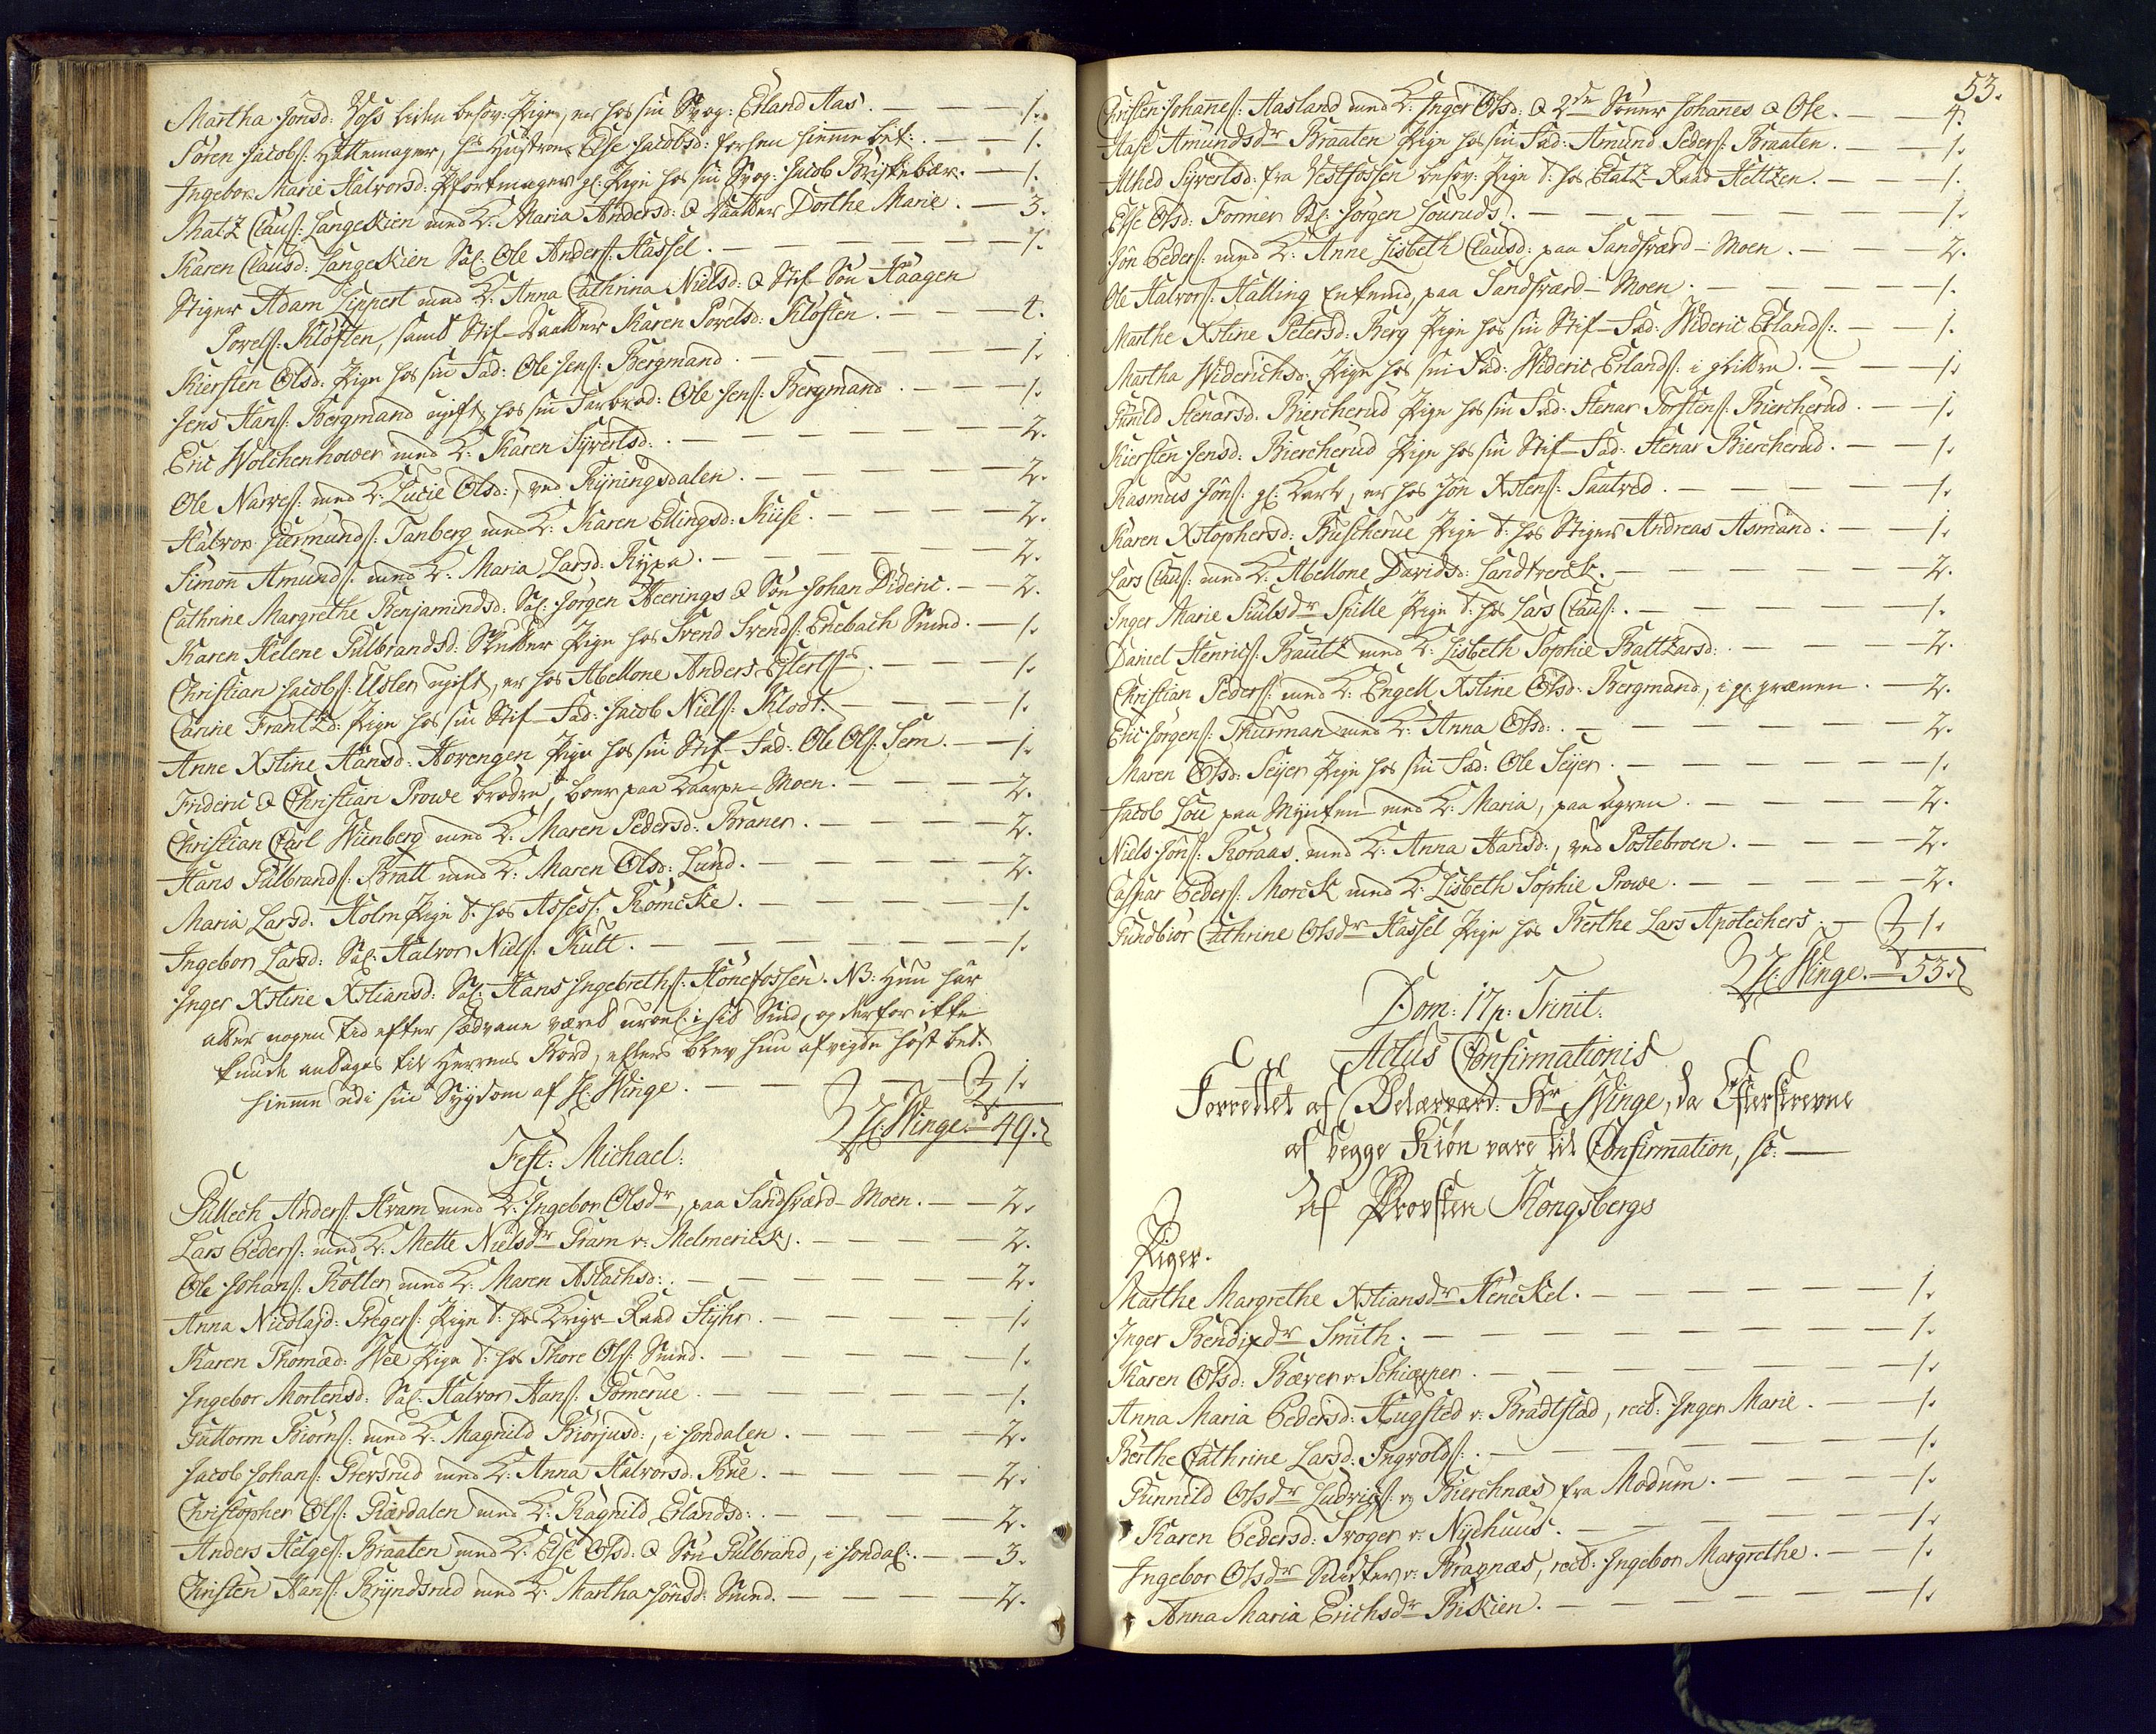 Martha Jonsd: Voss liden besov: Pige, er hos sin Svog: Erland Aas. — — — 1.
Sören Jacobs: Hattemager, hs Hustroe Else Jacobsd: forhen hiemme bet: . — — 1.
Ingebor Marie Halvorsd: Pfortmager gl: Pige hos sin Svog: Jacob Bristebær. — 1.
Matz Claus: Langeskien med K: Maria Andersd: & Daatter Dorthe Marie. — 3.
Karen Clausd: Langeskien Sal: Ole Anders: Hassel. — — — — — 1.
Stiger Adam Lippert med K: Anna Cathrina Nielsd: & Stif-Sön Haagen
Povels: Klöften, samt Stif-Daatter Karen Povelsd: Klöften. — — — 4.
Kiersten Olsd: Pige hos sin Fad: Ole Jens: Bergmand. — — — — 1.
Jens Hans: Bergmand ugift, hos sin Farbrod: Ole Jens: Bergmand. — — 1.
Eric Wolchenhower med K: Karen Syvertsd: . — — — — — 2.
Ole Narves: med K: Lucie Olsd:, ved Rÿningsdalen. — — — — 2.
Halvor Giermunds: Tanberg med K: Karen Ellingsd: Kiise. — — — — 2.
Simon Amunds: med K: Maria Larsd: Rypa. — — — — — 2.
Cathrine Margrethe Benjamindsd: Sal: Jörgen Heerings & Sön Johan Dideric. — 2.
Karen Helene Gulbrandsd: Skutter Pige hos Svend Svends: Enebach Smed. — 1.
Christian Jacobs: Usler ugift, er hos Abellone Anders Eylerts. — — — 1.
Carine Frantzd: Pige hos sin Stif-Fad: Jacob Niels: Klodt. — — — 1.
Anne Xstine Hansd: Hovengen Pige hos sin Stif-Fad: Ole Ols: Sem. — — 1.
Frideric & Christian Prowe brödre, boer paa Kaarpe-Moen. — — — 2.
Christian Carl Wiinberg med K: Maren Pedersd: Braner. — — — — 2.
Hans Gulbrands: Bratt med K: Maren Olsd: Lund. — — — — 2.
Maria Larsd: Holm Pige t: hos Assess: Römcke. — — — — — 1.
Ingebor Larsd: Sal: Halvor Niels: Kult. — — — — — — 1.
Inger Xstine Xstiansd: Sal: Hans Ingebreths: Hönefossen. NB: Hun har
atter nogen tid efter sædvane været uroel: i sit Sind, og derfor ikke
kunde antages til Herrens Bord, ellers blev hun afvigte höst bet:
hiemme udi sin Sygdom af H: Winge. — — — 1.
H: Winge. — 49.
Fest: Michael:
Gullech Anders: Hvam med K: Ingebor Olsdr, paa Sandsværd-Moen. — — 2.
Lars Peders: med K: Mette Nielsdr Gram v: Melmerick. — — — — 2.
Ole Johans: Kotter, med K: Maren Aslachsd: . — — — — — 2.
Anna Nicolasd: Gregers: Pige t: hos Krigs-Raad Hyhr. — — — — 1.
Karen Thomæd: Wee Pige t: hos Thore Ols: Smed. — — — — 1.
Ingebor Mortensd: Sal: Halvor Hans: Gomerue. — — — — — 1.
Guttorm Biörns: med K: Magnild Biörjusd:, i Jondalen. — — — 2.
Jacob Johans: Grevsrud med K: Anna Halvorsd: Rue. — — — — 2.
Christopher Ols: Kiærdalen med K: Ragnild Elandsd: . — — — — 2.
Anders Helges: Braaten med K: Else Olsd: & Sön Gulbrand, i Jondal: . — — 3.
Christen Hans: Bryndsrud med K: Martha Jönsd: Smed. — — — — 2.
53.
Christen Johannes: Aasland med K: Inger Olsd: & 2de Sönner Johannes & Ole. — — 4.
Aase Amundsdr Braaten Pige hos sin Fad: Amund Peders: Braaten. — — — 1.
Alhed Syvertsd: fra Vestfossen besov: Pige t: hos Etatz-Raad Heltzen. — — — 1.
Else Olsd: Former Sal: Jörgen Jouruds. — — — — — — — 1.
Jön Peders: med K: Anne Lisbeth Clausd: paa Sandsværd-Moen. — — — 2.
Ole Halvors: Halling Enkemd, paa Sandsværd-Moen. — — — — — 1.
Marthe Xstine Petersd: Berg Pige hos sin Stif-Fad: Wideric Erlands: . — — 1.
Martha Widerichsd: Pige hos sin Fad: Wideric Erlands: i glittre. — — — 1.
Gunild Stenarsd: Biercherud Pige hos sin Fad: Stenar Torstens: Biercherud. — — 1.
Kiersten Jensd: Biercherud Pige hos sin Stif-Fad: Stenar Biercherud. — — 1.
Rasmus Jöns: gl: Karl, er hos Jön Xstens: Saatved. — — — — — 1.
Karen Xstophersd: Buscherue Pige t: hos Stiger Andreas Asmund. — — — 1.
Lars Claus: med K: Abellone Davidsd: Landtverck. — — — — — 2.
Inger Marie Siulsdr Spille Pige t: hos Lars Claus: . — — — — — 1.
Daniel Henrics: Bautz med K: Lisbeth Sophie Baltzarsd: . — — — — 2.
Christian Peders: med K: Engell Xstine Olsd: Bergmand, i gl: grænen. — — 2.
Eric Jörgens: Thurman med K: Anna Olsd: . — — — — — — 2.
Maren Olsd: Seyer Pige hos sin Fad: Ole Seyer. — — — — — 1.
Jacob Lou paa Mynten med K: Maria, paa Ögren. — — — — — 2.
Niels Jöns: Roraas med K: Anna Hansd:, ved Postebroen. — — — — 2.
Caspar Peders: Morck med K: Lisbeth Sophie Prowe. — — — — — 2.
Gundbiör Cathrine Olsdr Hassel Pige hos Berthe Lars Apotechers. — 1.
H: Winge. — 53.
Dom: 17 p: Trinit:
Actus Confirmationis
Forrettet af Velærværd: Hr Winge, da Efterskrevne
af begge Kiön vare til Confirmation, sc: —
Af Provsten Kongsbergs
Piger.
Marthe Margrethe Xstiansdr Henckel. — — — — — — 1.
Inger Bendixdr Smith. — — — — — — — — 1.
Karen Olsd: Bæver v: Schiæper. — — — — — — — 1.
Anna Maria Pedersd: Hugsted v: Bradtstad, rect: Inger Marie. — — — 1.
Berthe Cathrine Larsd: Ingvolds: . — — — — — — — 1.
Gunnild Olsdr Ludvigs: v: Bierchnæs fra Modum. — — — — — 1.
Karen Pedersd: Svoger v: Nyehuus. — — — — — — — 1.
Ingebor Olsdr v: Bragnæs, rect: Ingebor Margrethe. — — — 1.
Anna Maria Erichsdr Biskien. — — — — — — — 1.